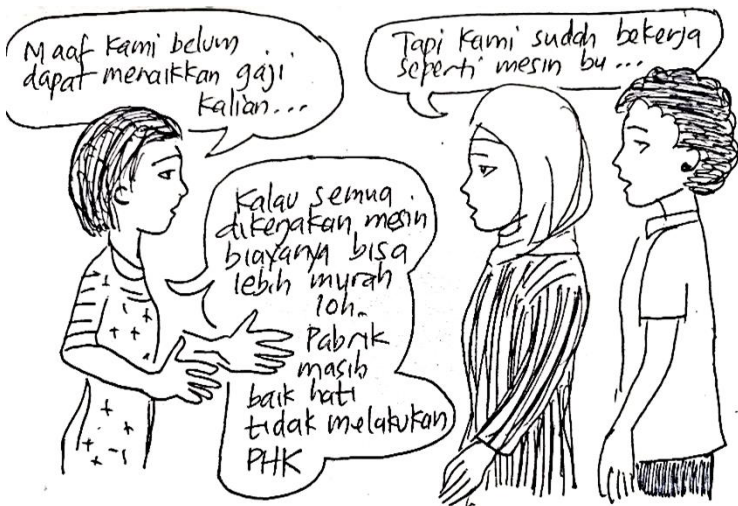 Maaf kami belum
dapat menaikkan gaji
kalian...
Tapi kami sudah bekerja
seperti mesin bu...
Kalau semua
dikerjakan mesin
biayanya bisa
lebih murah
loh.
Pabrik
masih
baik hati
tidak melakukan
PHK